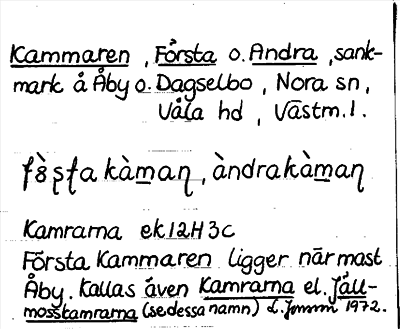 Kammaren, Första o. Andra, sank-
mark å Åby o. Dagselbo, Nora sn,
Våla hd, Västm. l.
kàman, àndrakàman
Kamrarna ek 12H 3c
Första Kammaren ligger närmast
Åby. Kallas även Kamrarna el. Jäll-
mosskamrarna (se dessa namn) 1972.